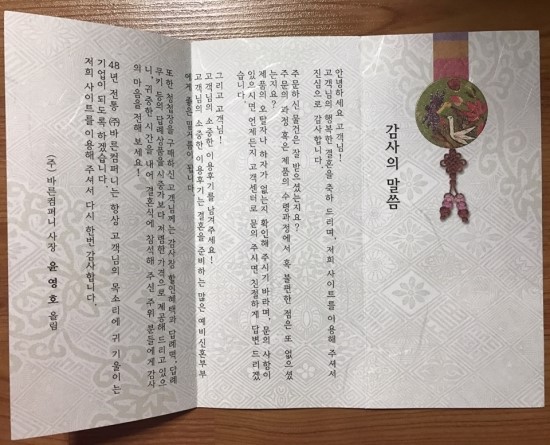 감사의 말씀
안녕하세요 고객님!
고객님의 행복한 결혼을 축하 드리며, 저희 사이트를 이용해 주셔서
진심으로 감사합니다.
주문하신 물건은 잘 받으셨는지요?
주문의 과정 혹은 제품의 수령과정에서 혹 불편한 점은 또 없으셨
는지요?
제품의 오탈자나 하자가 없는지 확인해 주시기 바라며, 문의 사항이
있으시면 언제든지 고객센터로 문의 주시면 친절하게 답변 드리겠
습니다.
그리고 고객님!
고객님의 소중한 이용후기를 남겨주세요!
고객님의 소중한 이용후기는 결혼을 준비하는 많은 예비신혼부부
에게 좋은 밑거름이 됩니다.
또한 청첩장을 구매하신 고객님께는 감사장 할인혜택과 답례떡, 답례
쿠키 등의 답례상품을 시중가보다 저렴한 가격으로 제공해 드리고 있으
니, 귀중한 시간을 내어 결혼식에 참석해 주신 주위 분들에게 감사
의 마음을 전해 보세요!
48년 전통 ㈜바른컴퍼니는 항상 고객님의 목소리에 귀 기울이는
기업이 되도록 하겠습니다.
저희 사이트를 이용해 주셔서 다시 한번 감사합니다.
(주) 바른컴퍼니 사장 윤영호 올림